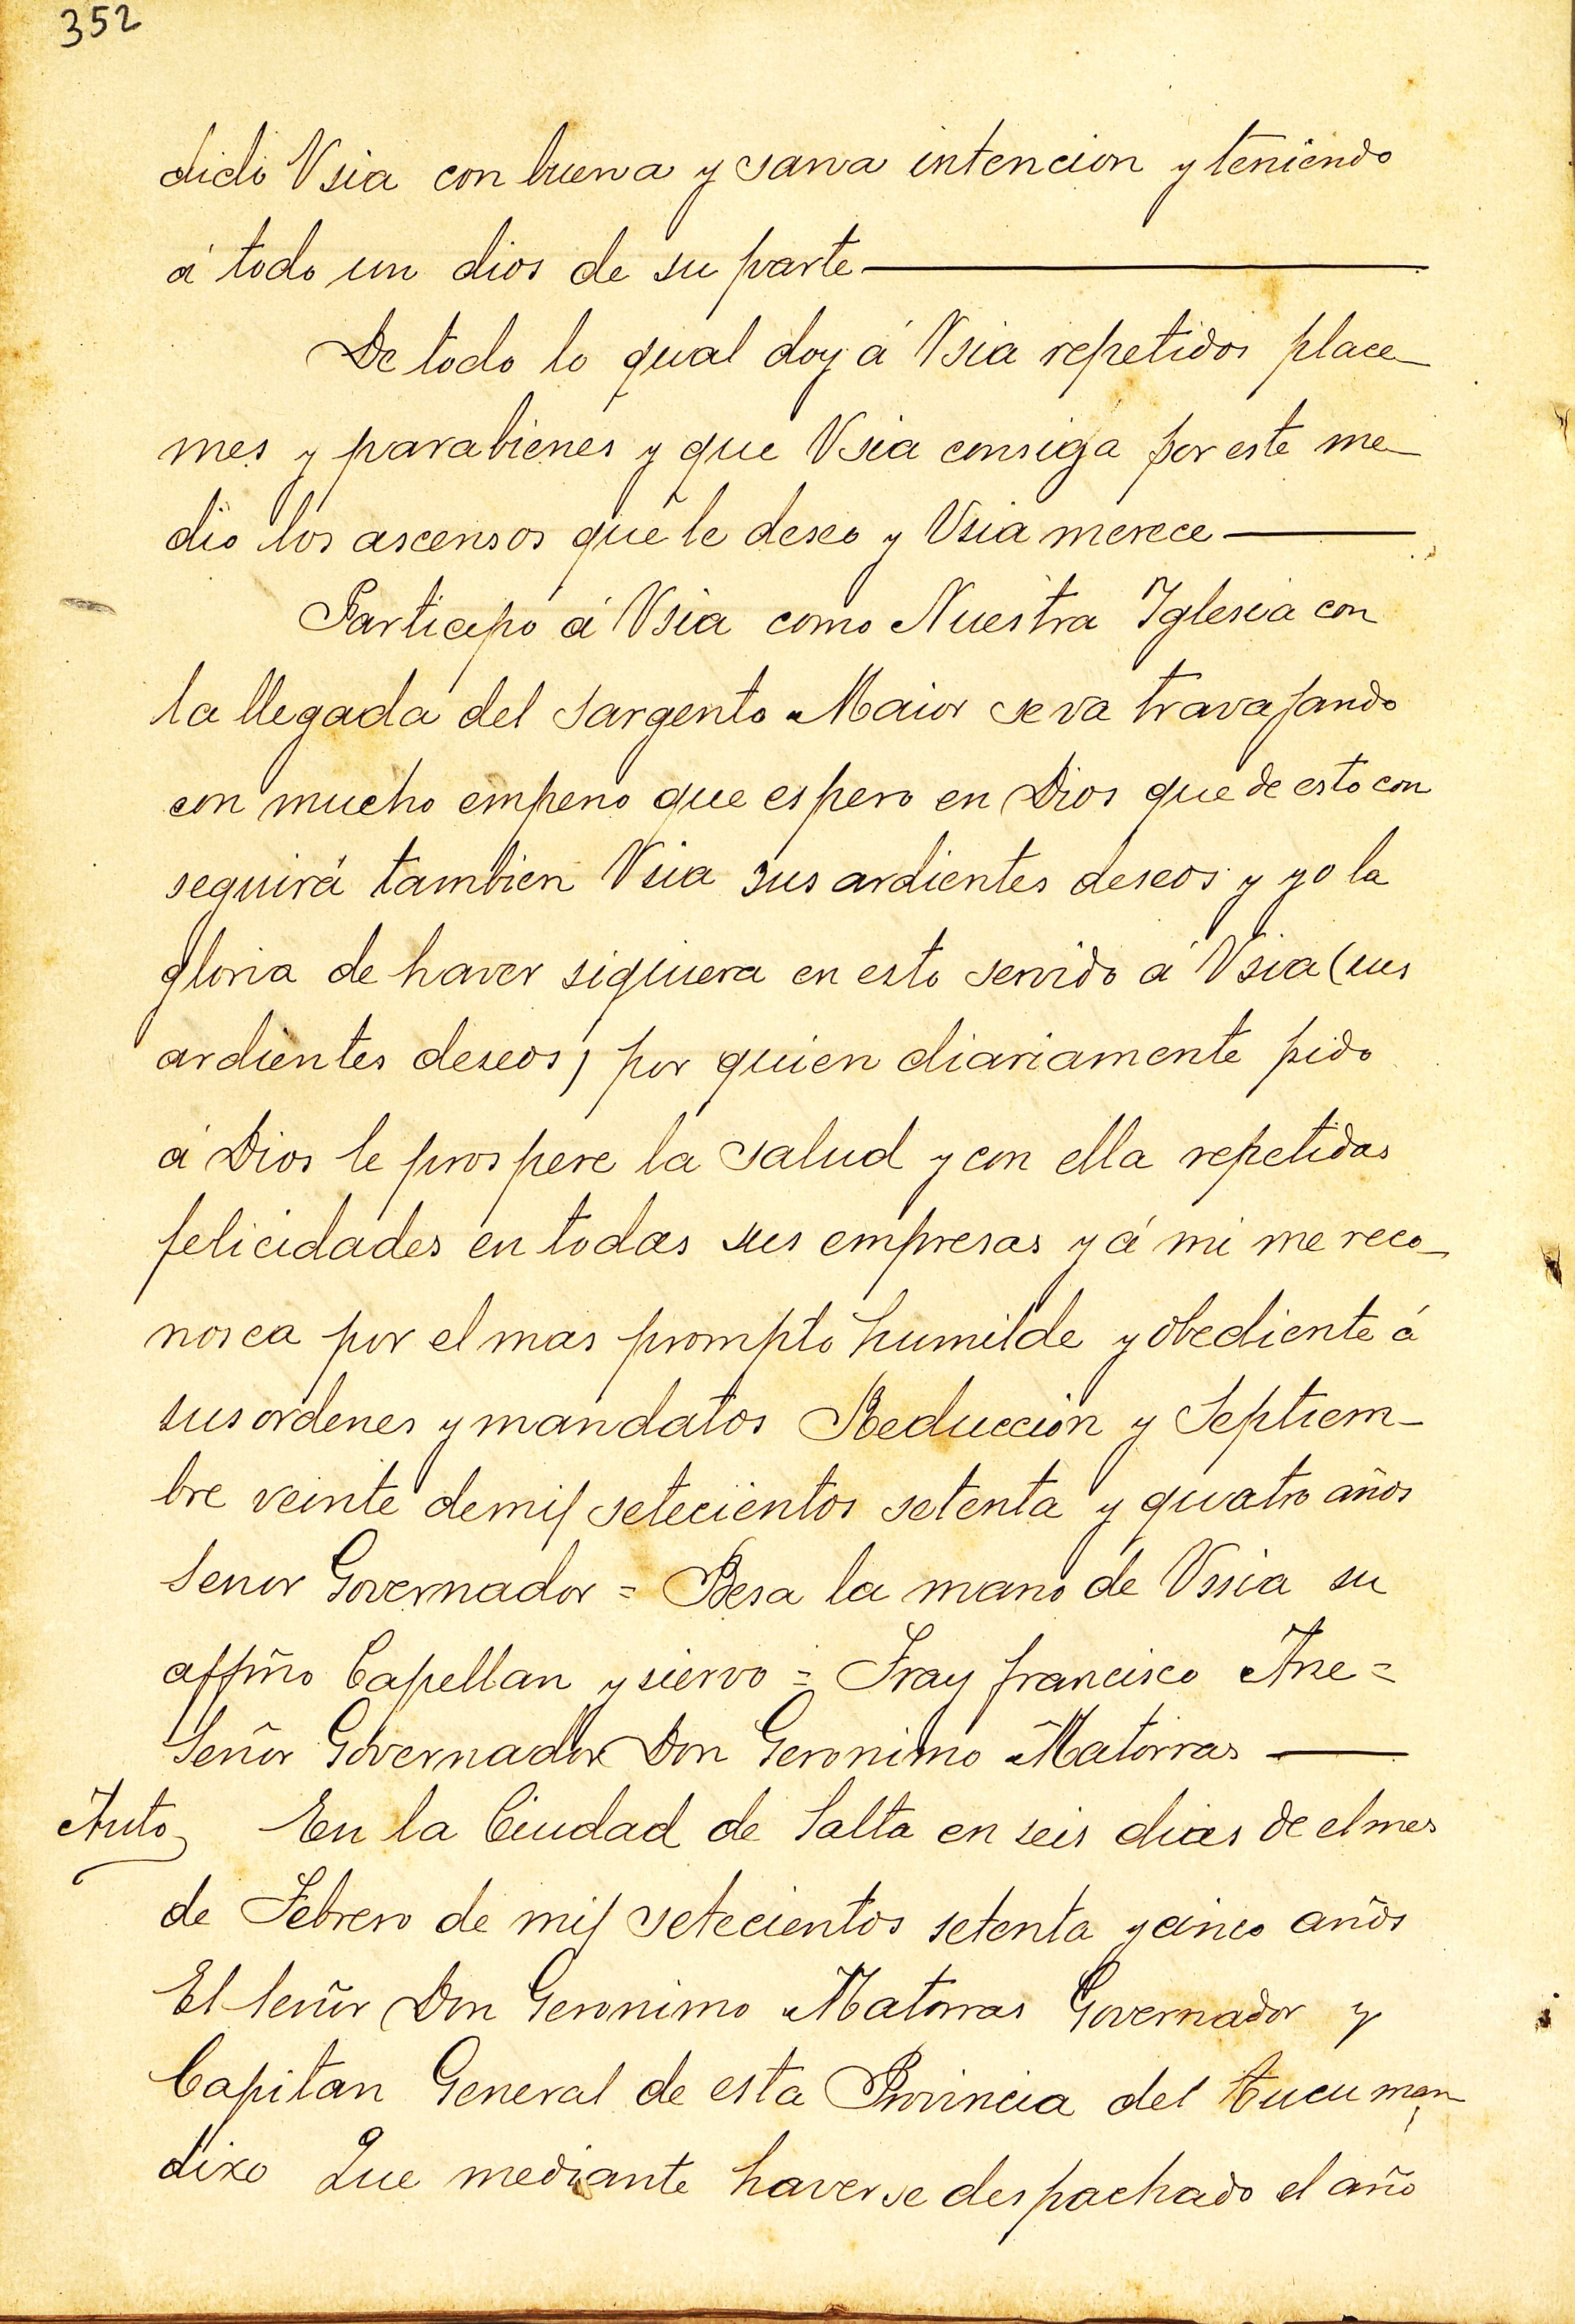 352
didi Vsia con buena y sana intencion y teniendo
á todo un dios de su parte
De todo lo qual doy á Vsia repetidos place_
mes y parabienes y que Vsia consiga por este me_
dio los ascensos que le deseo y Vsia merece
Participo á Vsia como Nuestra Iglesia con
la llegada del sargento Maior se va travajando
con mucho empeno que espero en Dios que de esto con
seguirá tambien Vsia sus ardientes deseos y yo la
gloria de haver siquiera en esto servido á Vsia (sus
ardientes deseos) por quien diariamente pido
á Dios le prospere la salud y con ella repetidas
felicidades en todas sus empresas y á mi me reco_
nosca por el mas prompto humilde y obediente á
sus ordenes y mandatos Reduccion y Septiem_
bre veinte de mil setecientos setenta y quatro años
Senor Governador = Besa la mano de Ussia su
affmo Capellan y siervo = Fray francisco =
Señor Governador Don Geronimo Matorras
Auto En la Ciudad de Salta en seis dias de el mes
de Febrero de mil setecientos setenta y cinco años
El Señor Don Geronimo Matorras Governador y
Capitan General de esta Provincia del tucuman
dixo Que mediante haverse despachado el año